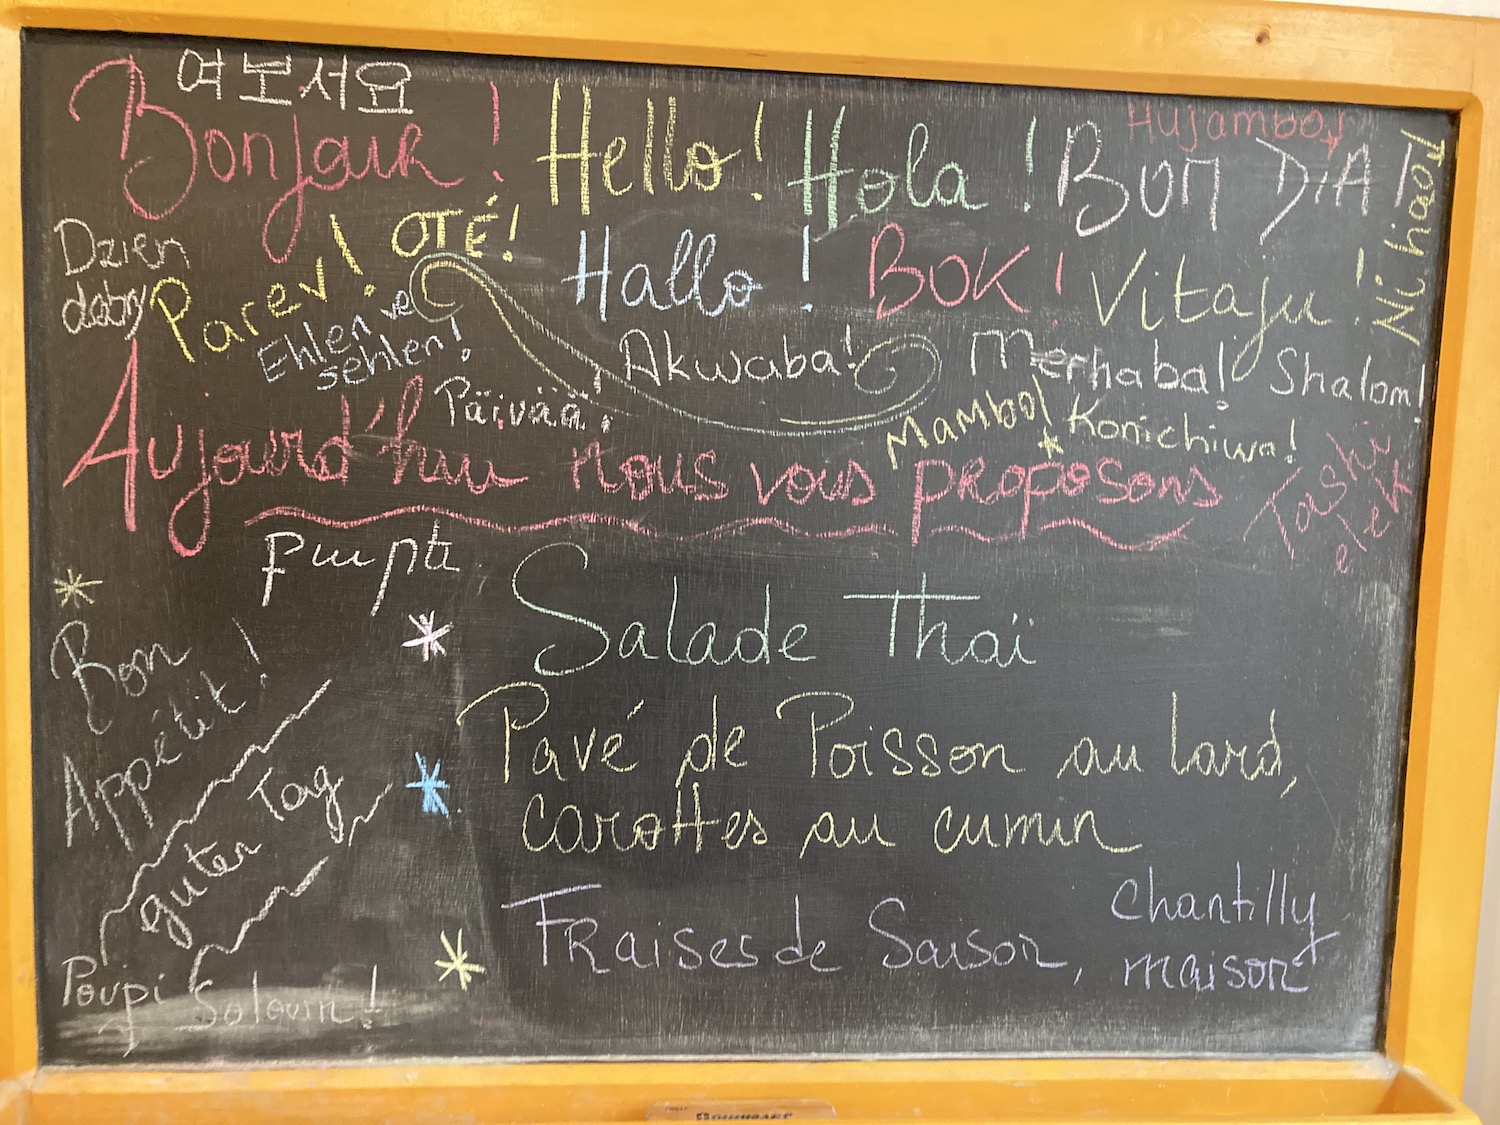 여보서요
Bonjour! Hello! Hola! BOM DIA!
Hujambo!
Ni hiao!
Dzien
dobry
Parev! OTÉ! Hallo! BOK! Vitaju!
Ehlen ve
sehlen!
Päivää! Akwaba! Merhaba! Shalom!
Mambo! Konichiwa!
Aujourd'hui nous vous proposons
Tashi
elek
Salade Thaï
Bon
Appétit!
Pavé de Poisson au lard,
carottes au cumin
guten Tag
Fraises de Saison, Chantilly
maison